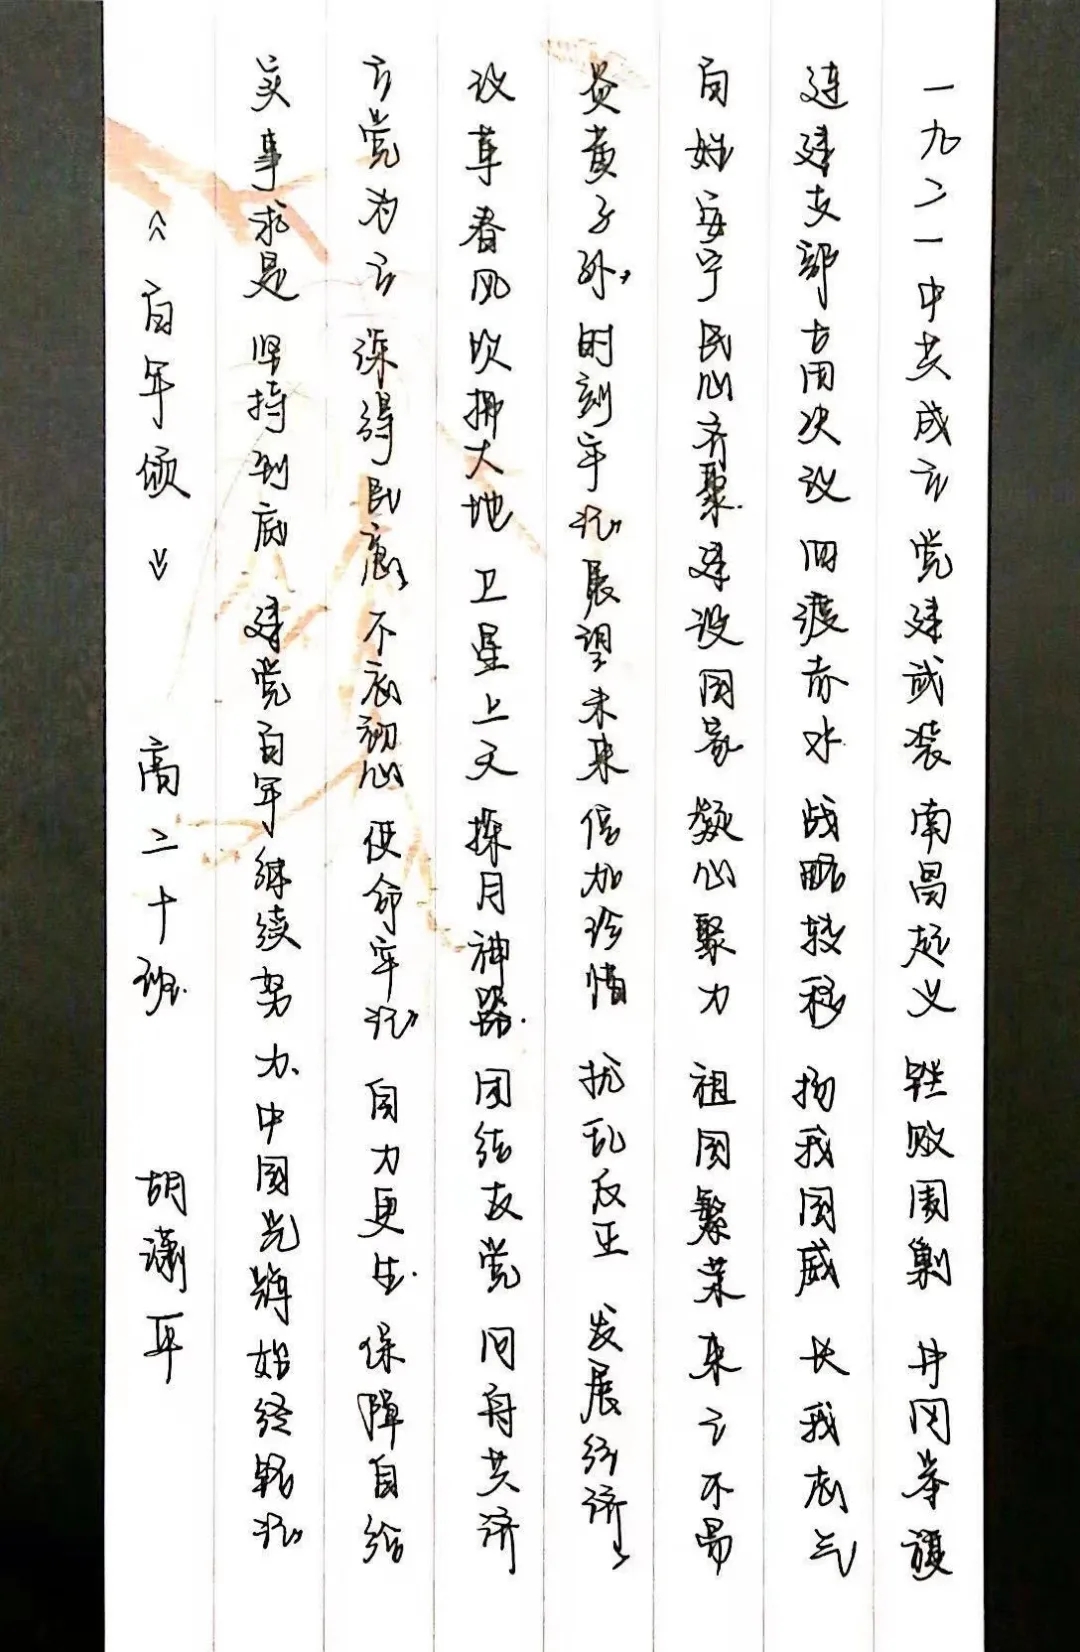 一九二一中共成立党建武装南昌起义 挫败围剿 井冈举旗
连建支部古田决议 四渡赤水 战略转移 扬我国威 长我志气
百姓安宁民心齐聚建设国家凝心聚力 祖国繁荣来之不易
炎黄子孙时刻牢记展望未来倍加珍惜 拨乱反正 发展经济
改革春风吹拂大地 卫星上天探月神器团结友党 同舟共济
立党为公 深得民意不忘初心 使命牢记 自力更生 保障自给
实事求是 坚持到底 建党百年继续努力中国光辉始终铭记
《百年颂》 高二十班 胡潇